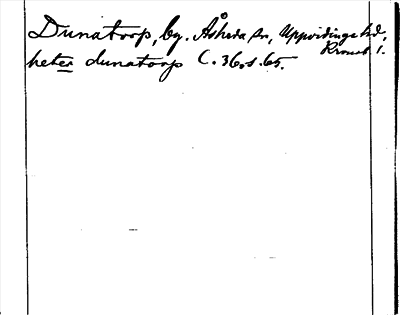 Dunatorp, by. Åsheda sn, Uppvidinge hd,
Kronob. l.
heter dunatorp C. 36. s. 65.